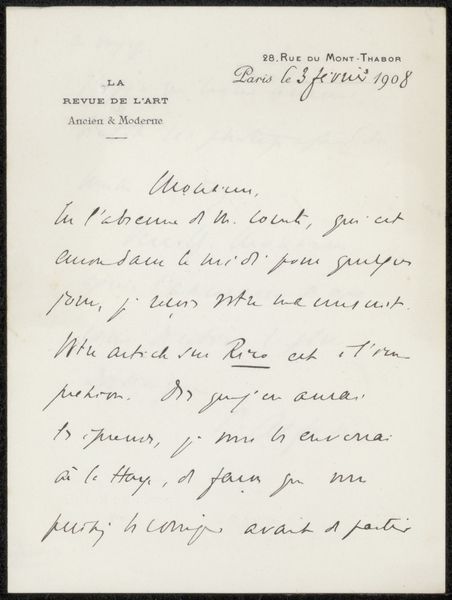 28. RUE DU MONT-THABOR
Paris le 3 février 1908
LA
REVUE DE L'ART
Ancien & Moderne
Monsieur,
En l'absence de M. Comte, qui est
encore dans le midi pour quelques
jours, je reçois votre manuscrit.
Votre article sur Rizo est à l'im
pression. Dès que j'en aurai
les épreuves, je vous les enverrai
à la Haye, de façon que vous
puissiez les corriger avant de partir